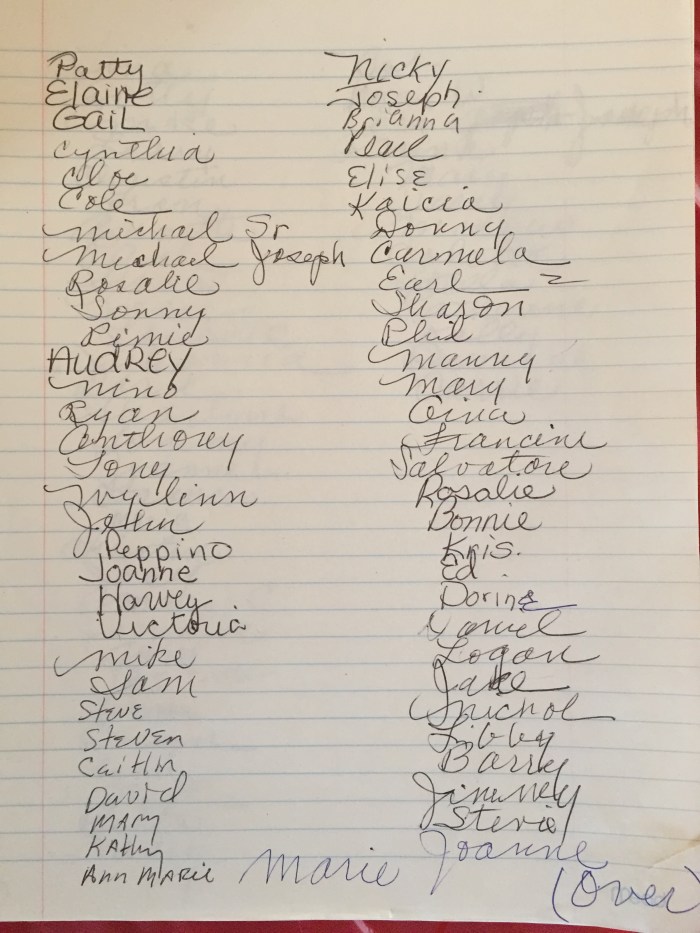 Patty
Elaine
GaiL
Cynthia
Cloe
Cole
Michael Sr
Michael Joseph
Rosalie
Sonny
AUdREY
Nino
Ryan
Anthoney
Tony
Ivylinn
John
Peppino
Joanne
Harvey
Victoria
Mike
Sam
STEVE
STEVEN
CaiTlin
David
MARY
KAthy
ANN MARIE
Marie
Nicky
Joseph.
Brianna
Pearl
ELISE
Kaicia
Donny
Carmela
Earl
Sharon
Phil
Manny
Mary
Gina
Francine
Salvatore
Rosalie
Bonnie
Kris.
Ed.
Dorine
Daniel
Logan
Jake
Nichol
Libby
Barry
Jimmey
Stevie
Joanne
(Over)